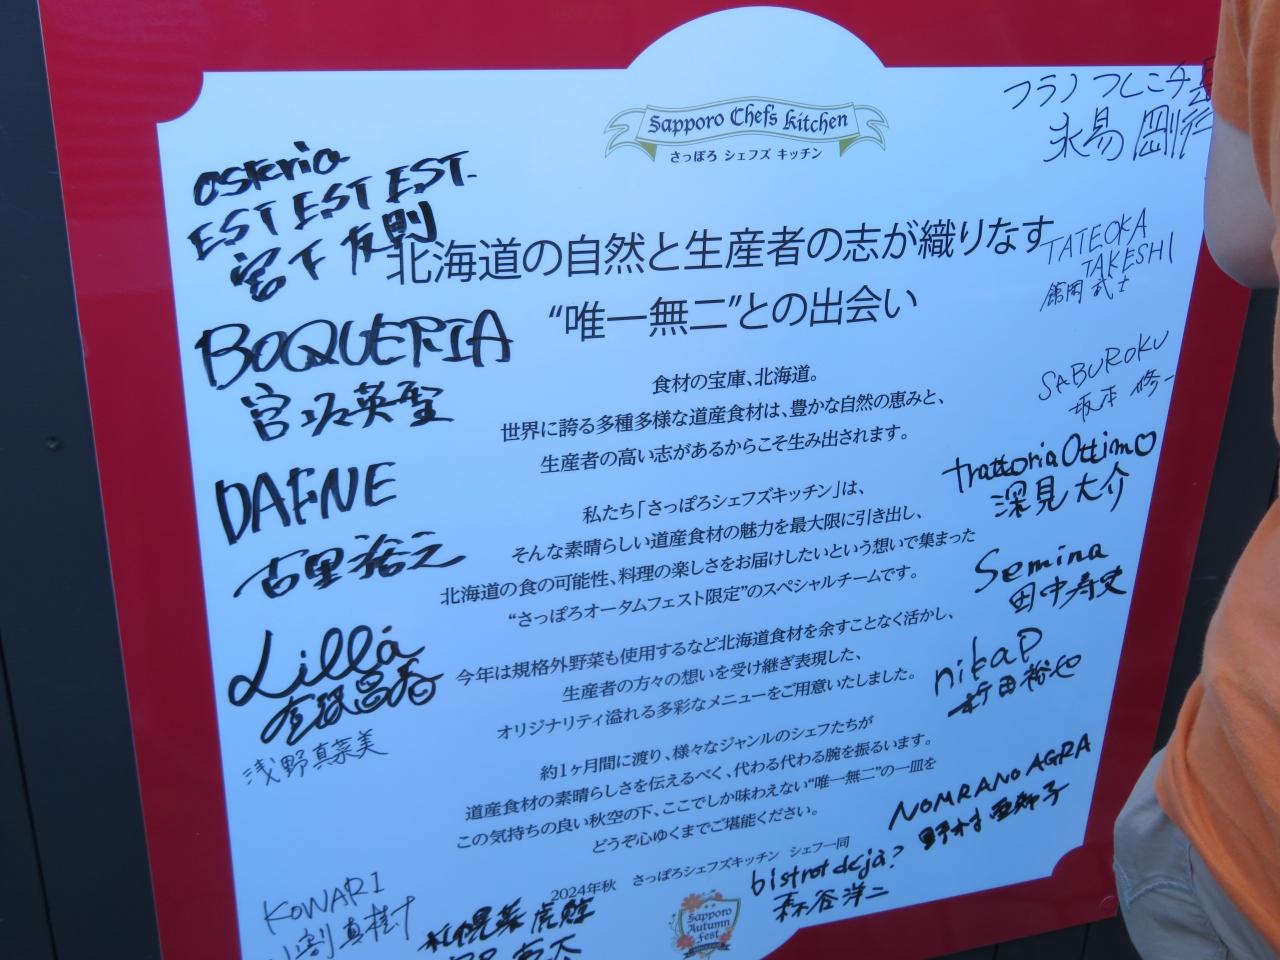 Sapporo Chefs Kitchen
さっぽろ シェフズ キッチン
北海道の自然と生産者の志が織りなす
“唯一無二”との出会い
食材の宝庫、北海道。
世界に誇る多種多様な道産食材は、豊かな自然の恵みと、
生産者の高い志があるからこそ生み出されます。
私たち「さっぽろシェフズキッチン」は、
そんな素晴らしい道産食材の魅力を最大限に引き出し、
北海道の食の可能性、料理の楽しさをお届けしたいという想いで集まった
“さっぽろオータムフェスト限定”のスペシャルチームです。
今年は規格外野菜も使用するなど北海道食材を余すことなく活かし、
生産者の方々の想いを受け継ぎ表現した、
オリジナリティ溢れる多彩なメニューをご用意いたしました。
約1ヶ月間に渡り、様々なジャンルのシェフたちが
道産食材の素晴らしさを伝えるべく、代わる代わる腕を振るいます。
この気持ちの良い秋空の下、ここでしか味わえない“唯一無二”の一皿を
どうぞ心ゆくまでご堪能ください。
2024年秋 さっぽろシェフズキッチン シェフ一同
Sapporo
Autumn
Fest
osteria
EST EST EST.
宮下友則
BOQUERIA
宮坂英聖
DAFNE
古里裕之
Lilla
浅野真菜美
KOWARI
小割真樹
札幌菜虎
フラノ
永易剛行
TATEOKA
TAKESHI
館岡武士
SABUROKU
坂本修一
trattoria Ottimo
深見大介
Semina
田中寿史
nikaP
折田裕也
NOMRANO AGRA
野村亜弥子
bistrot deja?
森谷洋二